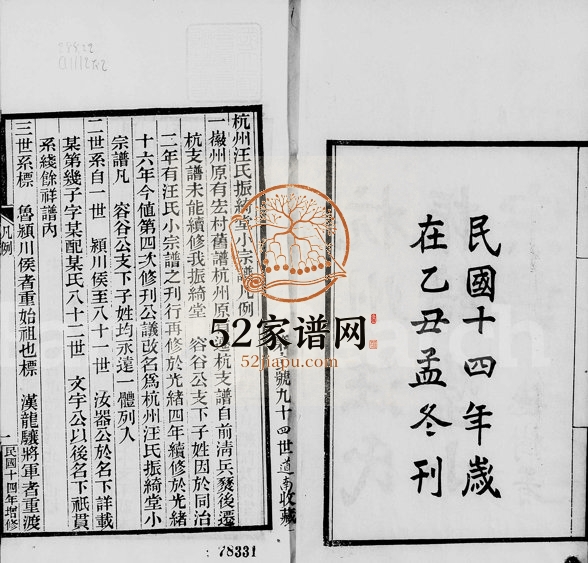 民國十四年歲
在乙丑孟冬刊
杭州汪氏振綺堂小宗譜凡例
一徽州原有宏村舊譜杭州原有杭支譜自前清兵燹後遷
杭支譜未能續修我振綺堂　容谷公支下子姓因於同治
二年有汪氏小宗譜之刊行再修於光緒四年續修於光緒
十六年今値第四次修刊公議改名爲杭州汪氏振綺堂小
宗譜凡　容谷公支下子姓均永遠一體列入
二世系自一世　潁川侯至八十一世　汝器公於名下詳載
某第幾子字某配某氏八十二世　文宇公以後名下祇貫
系綫餘祥譜內
三世系標　魯潁川侯者重始祖也標　漢龍驤將軍者重渡
凡例
一
民國十四年增修
號九十四世道南收藏
52家谱网
52jiapu.com
78331